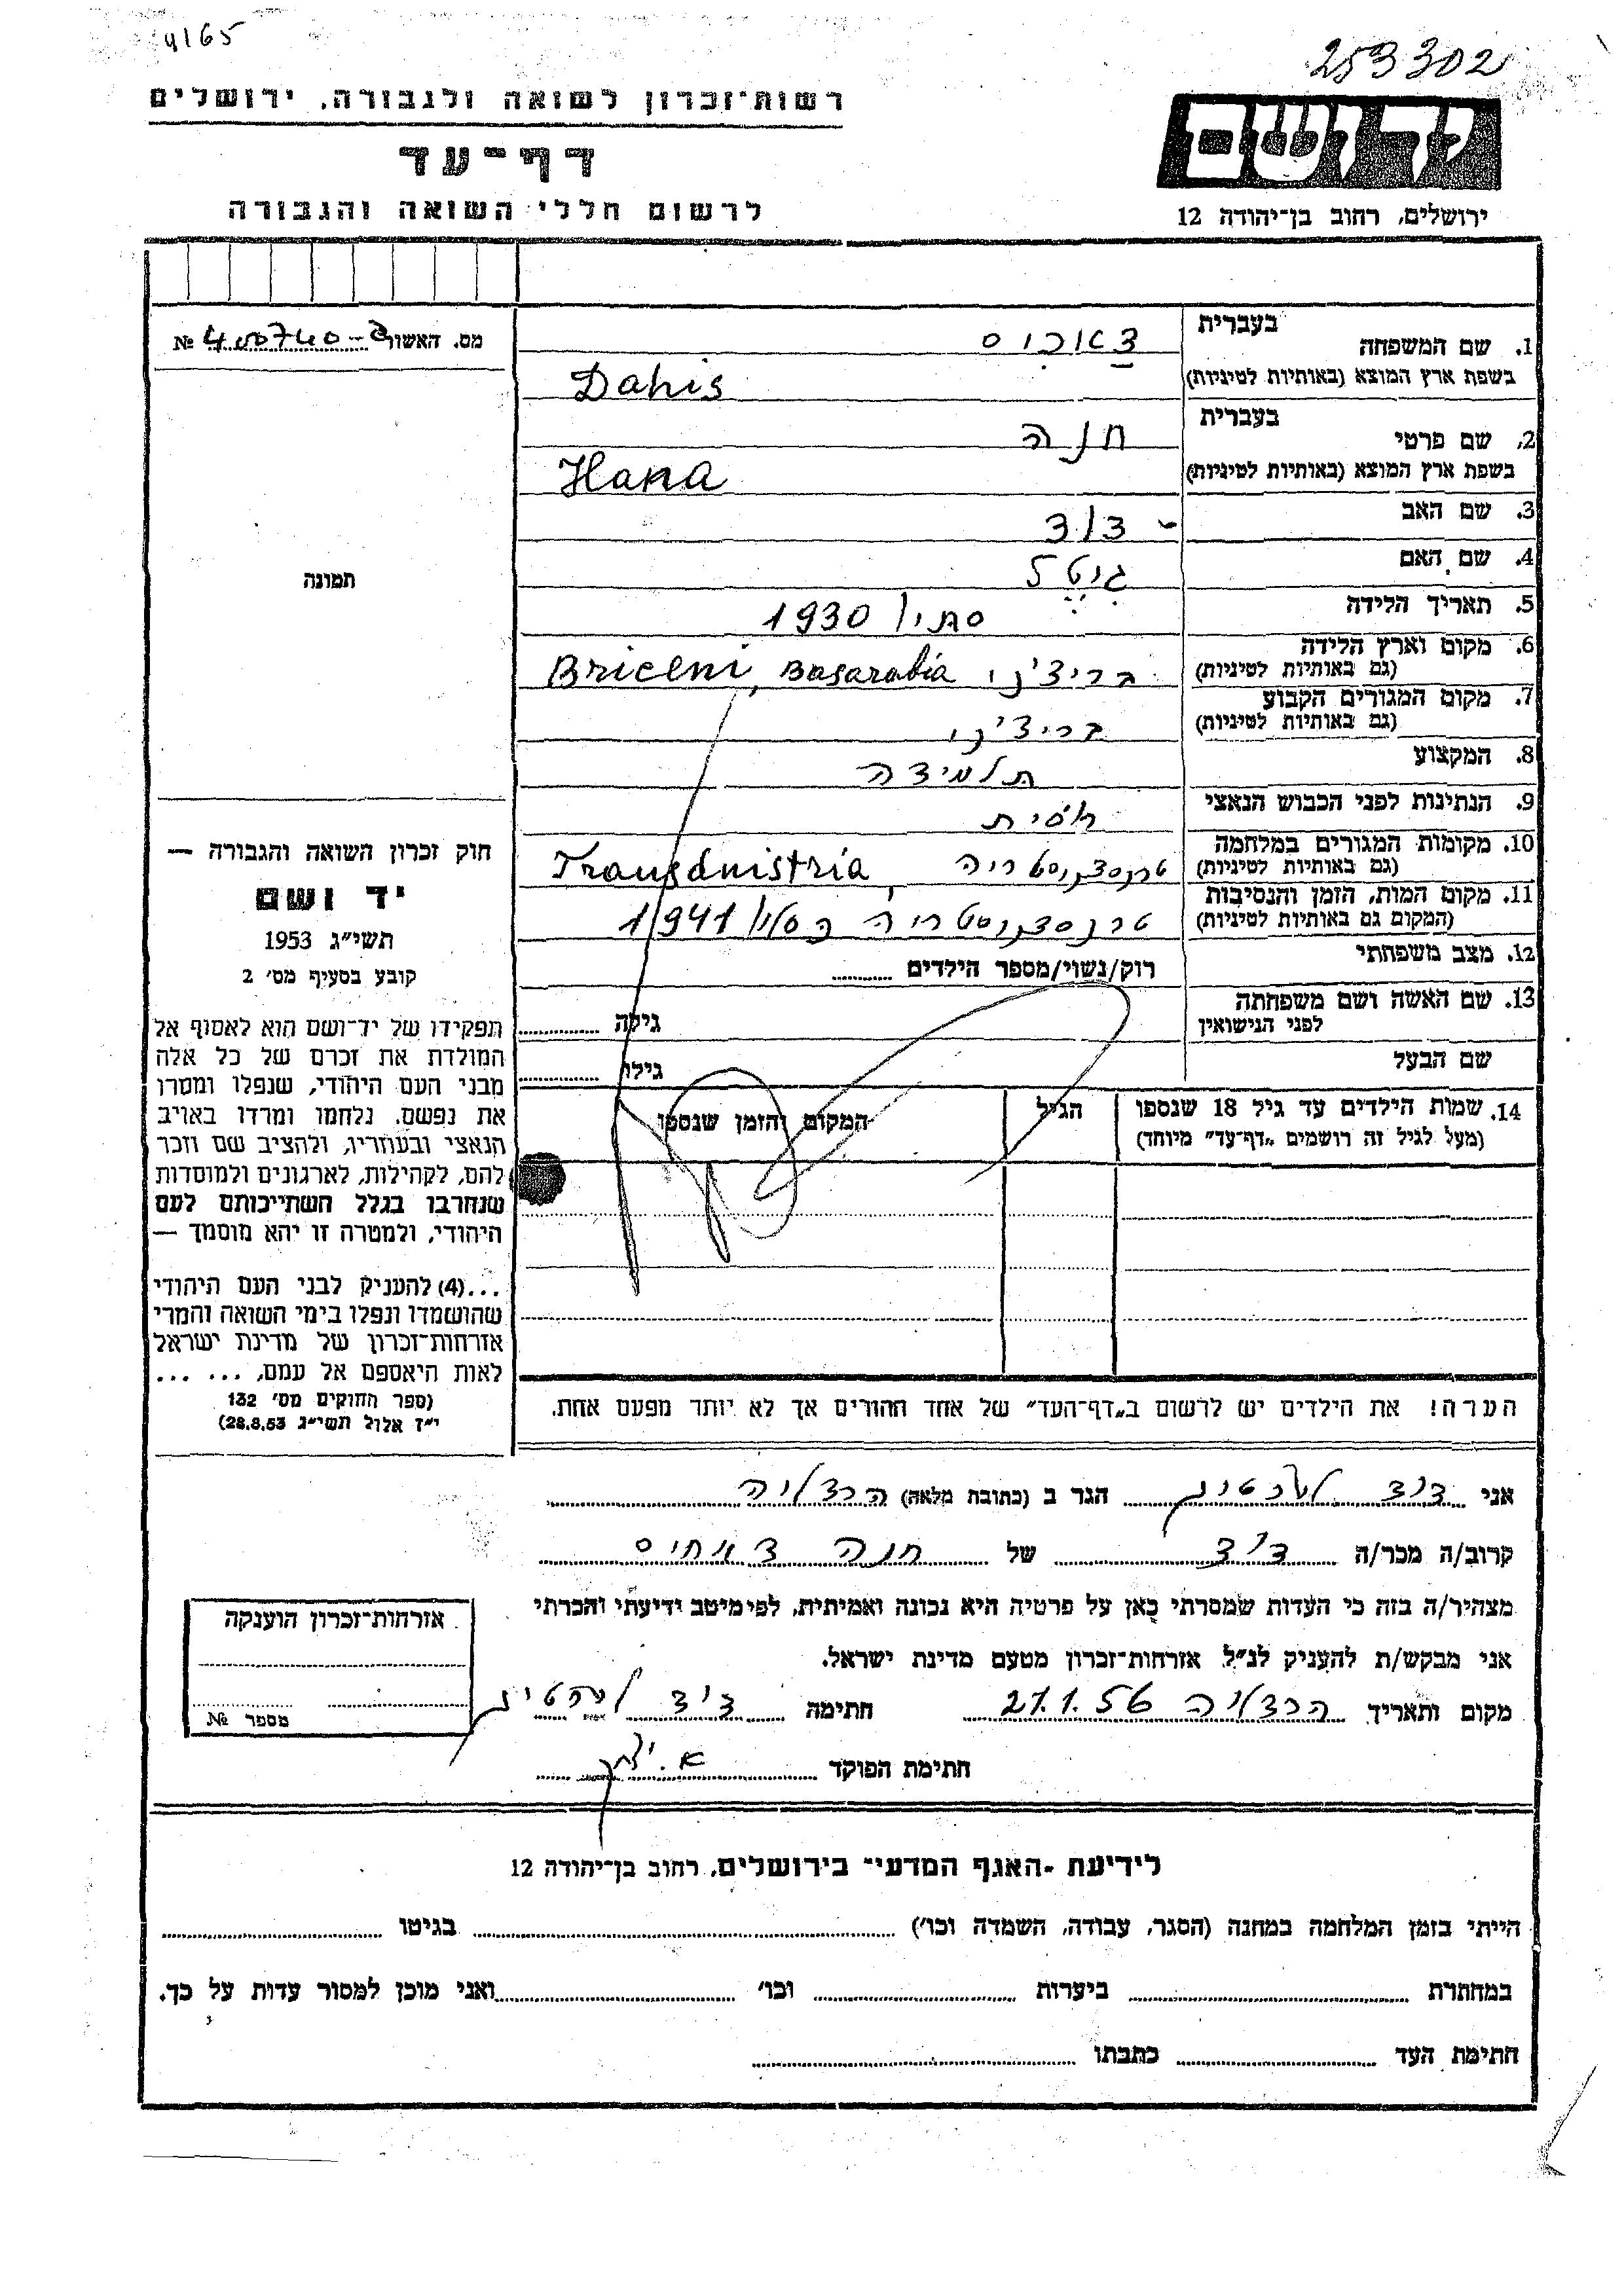 4165
253302
רשות־זכרון לשואה ולגבורה, ירושלים
דף־עד
לרשום חללי השואה והגבורה
ידושם
ירושלים, רחוב בן־יהודה 12
מס. האשור № 400740-
1. שם המשפחה בעברית
בשפת ארץ המוצא (באותיות לטיניות) Dahis
2. שם פרטי בעברית חנה
בשפת ארץ המוצא (באותיות לטיניות) Hana
3. שם האב דוד
4. שם האם גיטל
5. תאריך הלידה סתיו 1930
6. מקום וארץ הלידה
(גם באותיות לטיניות) בריצ'ני Briceni, Basarabia
7. מקום המגורים הקבוע
(גם באותיות לטיניות) בריצ'ני
8. המקצוע תלמידה
9. הנתינות לפני הכבוש הנאצי רוסית
10. מקומות המגורים במלחמה
(גם באותיות לטיניות) טרנסדניסטריה Transdnistria
11. מקום המות, הזמן והנסיבות
(המקום גם באותיות לטיניות) טרנסדניסטריה 1941
12. מצב משפחתי רוק/נשוי/מספר הילדים
13. שם האשה ושם משפחתה
לפני הנישואין גילה
שם הבעל גילו
14. שמות הילדים עד גיל 18 שנספו הגיל המקום והזמן שנספו
(מעל לגיל זה רושמים „דף־עד" מיוחד)
הערה! את הילדים יש לרשום ב„דף־העד" של אחד ההורים אך לא יותר מפעם אחת.
תמונה
חוק זכרון השואה והגבורה —
יד ושם
תשי"ג 1953
קובע בסעיף מס' 2
תפקידו של יד־ושם הוא לאסוף אל
המולדת את זכרם של כל אלה
מבני העם היהודי, שנפלו ומסרו
את נפשם, נלחמו ומרדו באויב
הנאצי ובעוזריו, ולהציב שם וזכר
להם, לקהילות, לארגונים ולמוסדות
שנחרבו בגלל השתייכותם לעם
היהודי, ולמטרה זו יהא מוסמך —
...(4) להעניק לבני העם היהודי
שהושמדו ונפלו בימי השואה והמרי
אזרחות־זכרון של מדינת ישראל
לאות היאספם אל עמם, ... ...
(ספר החוקים מס' 132
י"ז אלול תשי"ג 28.8.53)
אני דוד הגר ב (כתובת מלאה) הרצליה
קרוב/ה מכר/ה דוד של חנה דאחיס
מצהיר/ה בזה כי העדות שמסרתי כאן על פרטיה היא נכונה ואמיתית, לפי מיטב ידיעתי והכרתי
אני מבקש/ת להעניק לנ"ל אזרחות־זכרון מטעם מדינת ישראל.
מקום ותאריך הרצליה 27.1.56 חתימה דוד
חתימת הפוקד
אזרחות־זכרון הוענקה
מספר №
לידיעת „האגף המדעי" בירושלים, רחוב בן־יהודה 12
הייתי בזמן המלחמה במחנה (הסגר, עבודה, השמדה וכו') בגיטו
במחתרת ביערות וכו' ואני מוכן למסור עדות על כך.
חתימת העד כתבתו